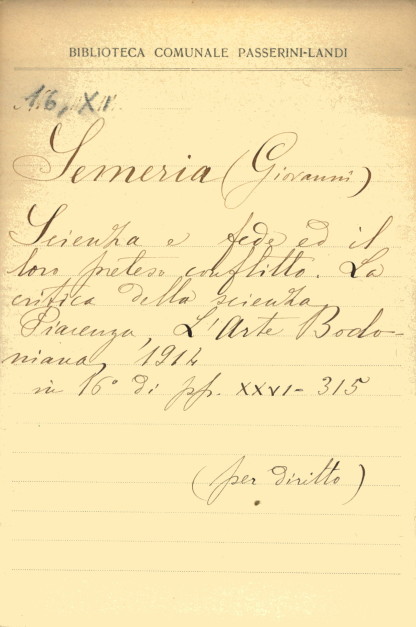 BIBLIOTECA COMUNALE PASSERINI-LANDI
16, XIV
Semeria (Giovanni)
Scienza e fede ed il
loro preteso conflitto. La
critica della scienza
Piacenza, L'Arte Bodo-
niana, 1914
in 16° di pp. XXVI-315
(per diritto)